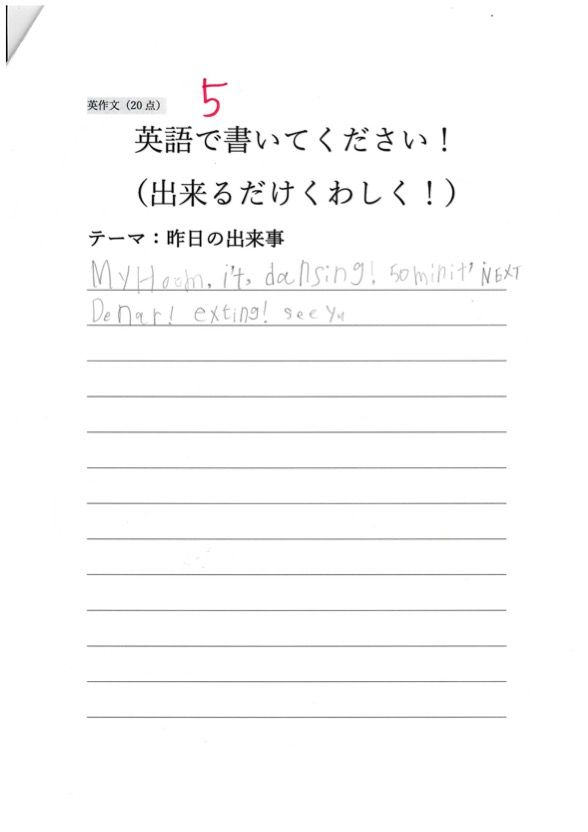 英作文（20点）
5
英語で書いてください！
（出来るだけくわしく！）
テーマ：昨日の出来事
My Hoom, i't, dansing! 50 minit' NEXT
Denar! exting! see yu